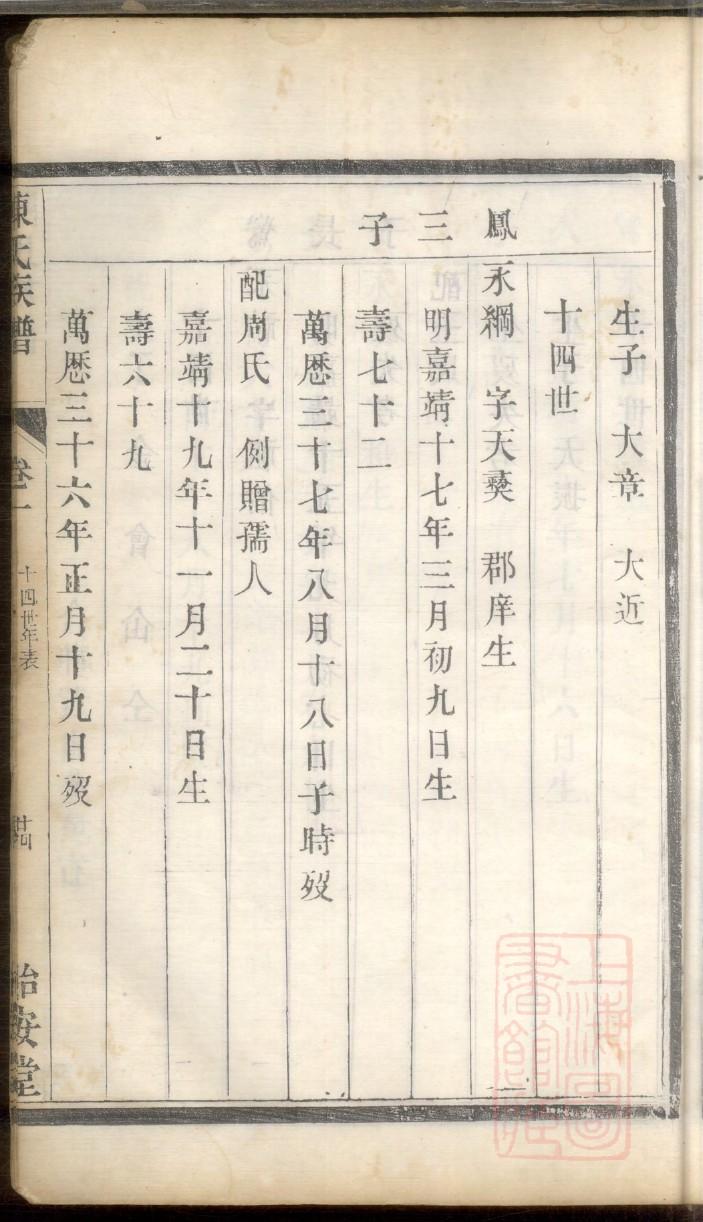 生子 大章 大近
十四世
鳳三子
永綱 字天爕 郡庠生
明嘉靖十七年三月初九日生
壽七十二
萬厯三十七年八月十八日子時歿
配周氏 例贈孺人
嘉靖十九年十一月二十日生
壽六十九
萬厯三十六年正月十九日歿
陳氏族譜
卷一
十四世年表
怡安堂
上海圖書館藏